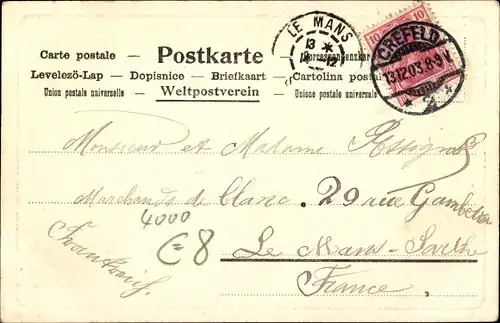 LE MANS
13 *
12
10 10
CREFELD
13.12.03.8-9V.
* 2 *
Carte postale — Postkarte
Levelező-Lap — Dopisnice — Briefkaart — Cartolina postale
Union postale universelle Weltpostverein Unione postale universale
Monsieur et Madame
Marchands de blanc. 29 rue Gambetta
4000
C=8
Le Mans-Sarthe
Frankreich.
France.